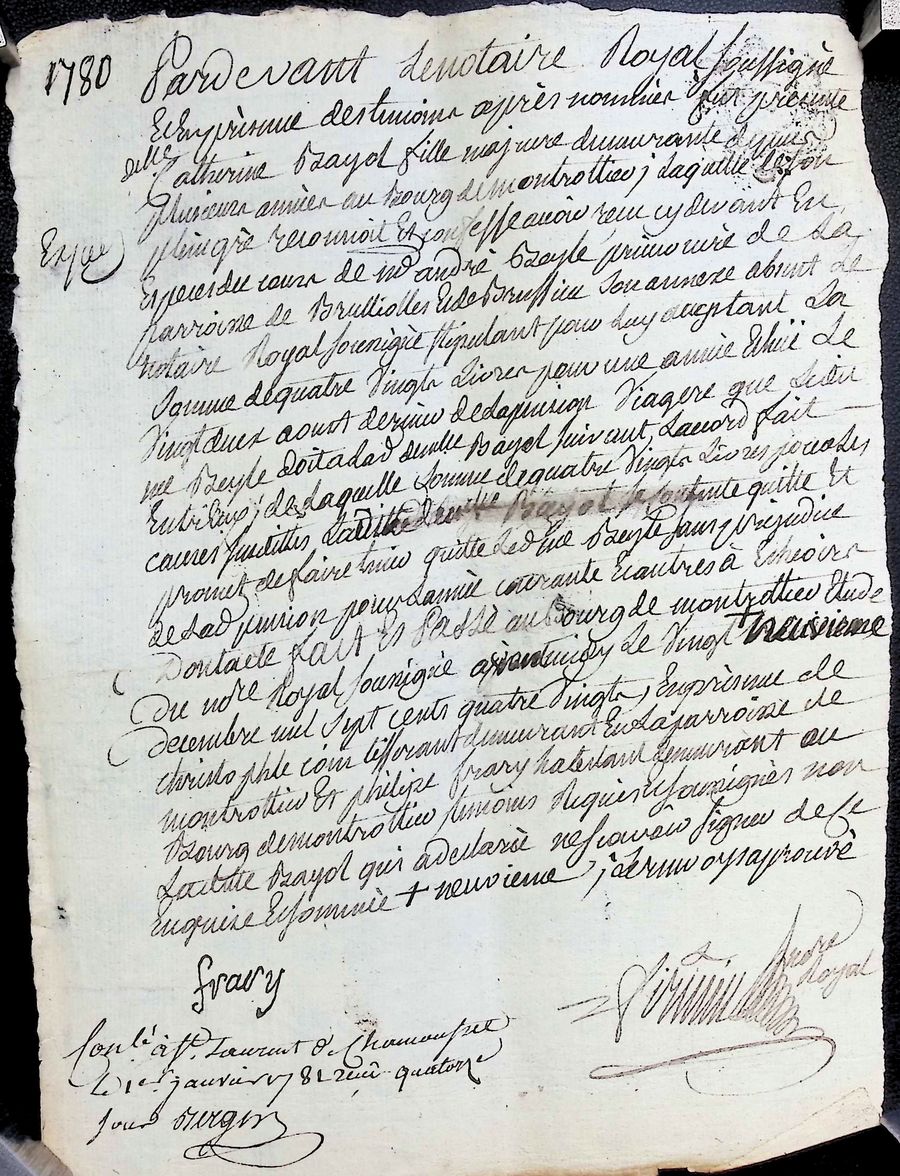 1780
Pardevant Lenotaire Royal soussigné
Et En présence des temoins après nommés fut présente
delle Catherine Bayol fille majeure demeurante depuis
plusieurs années au Bourg demontrottier; Laquelle deson
plein gré reconnoit Et confesse avoir receu cydevant En
Espece
Especes du cours de mre andré Bayle prieur curé de La
parroisse de Brullioles Et de Brussieu son annexe absent Le
notaire Royal sousigné stipulant pour Luy acceptant La
somme dequatre Vingts Livres pour une année Echüe Le
Vingt deux aoust dernier delapension Viagere que Ledit
me Bayle doit a lad demelle Bayol suivant Laccord fait
Entr'Eux; de Laquelle somme dequatre Vingts Livres pour les
causes susdittes Laditte demelle Bayol se contente quitte Et
promet defaire tenir quitte Led me Bayle sans préjudice
de Lad pension pour Lannée courante Et autres à Echeoir
Dont acte fait Et Passé au Bourg de montrottier Etude
Du nore Royal sousigné avant midy Le Vingt + neuvieme
decembre mil sept cents quatre Vingts, En présence de
christophle demeurant En La parroisse de
montrottier Et philipe frary habitant demeurant au
Bourg demontrottier temoins Requis Et sousignés non
Laditte Bayol qui a declaré ne scavoir signer de ce
Enquise Et sommée + neuvieme, approuvé
frary
nore
Royal
Conlé à St. Laurent de Chamousset
Le 1er janvier 1781 reçu quatorze
sous Berger